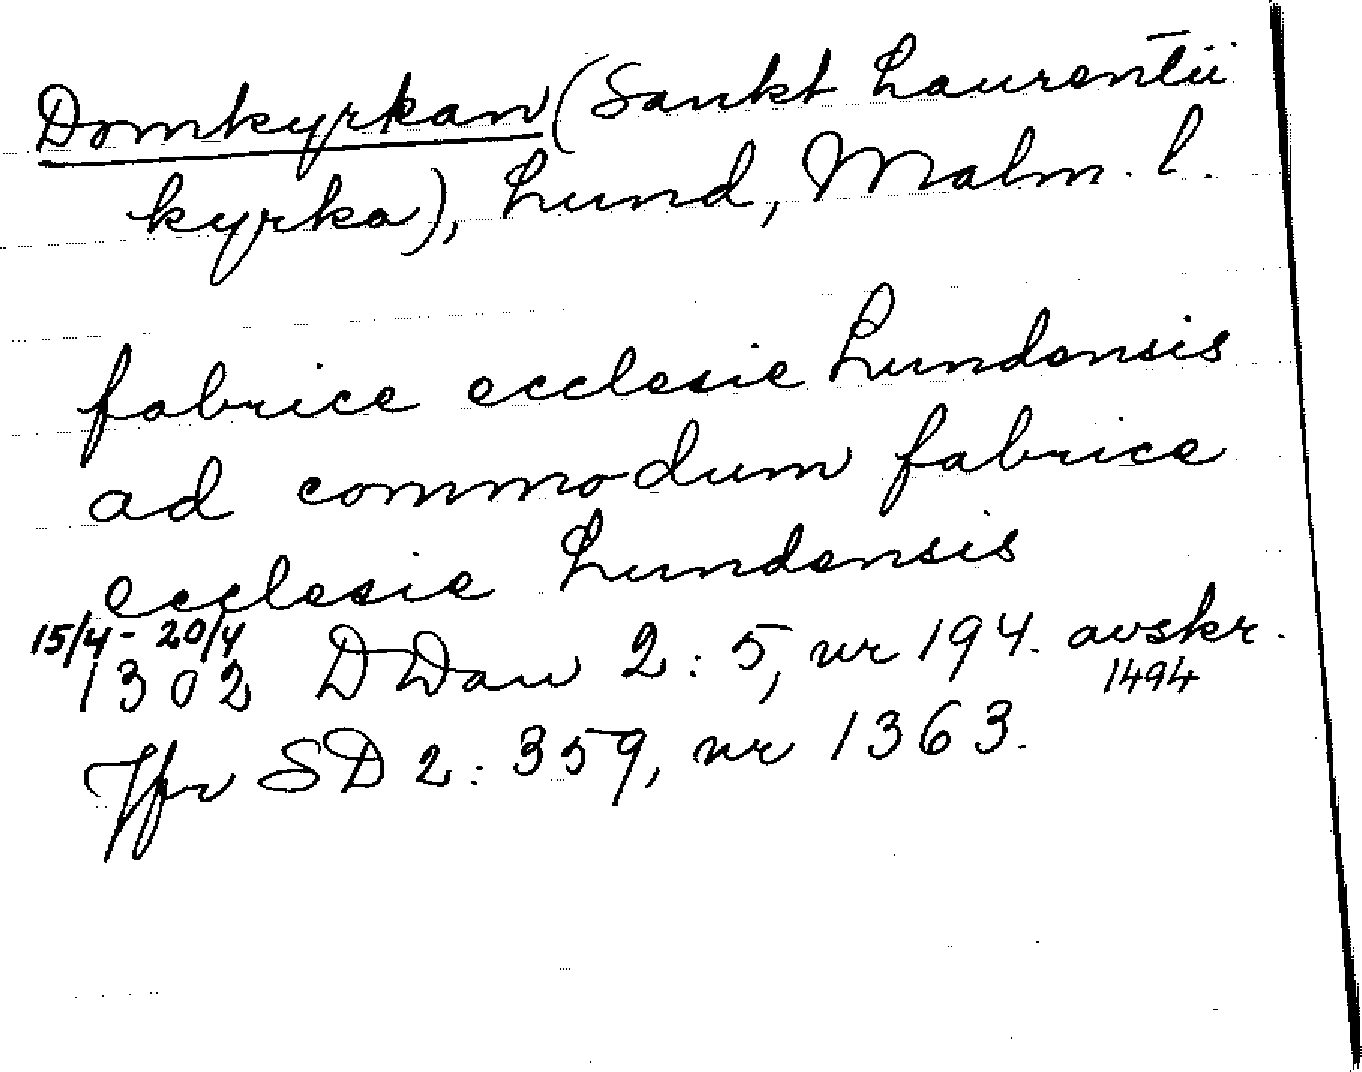 Domkyrkan (Sankt Laurentii
kyrka), Lund, Malm. l.
fabrice ecclesie Lundensis
ad commodum fabrice
ecclesie Lundensis
15/4 - 20/4
1302 DDan 2:5, nr 194. avskr.
1494
Jfr SD 2:359, nr 1363.